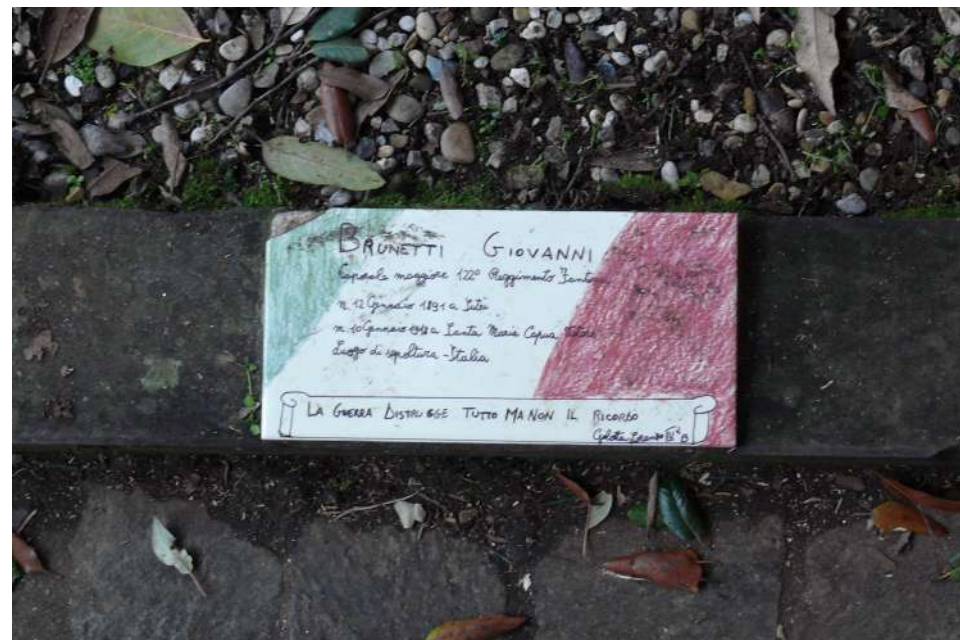 BRUNETTI GIOVANNI
Caporale maggiore 122º Reggimento
n. 12 Gennaio 1891 a
m. 10 Gennaio 1918 a Santa Maria Capua Vetere
Luogo di sepoltura - Italia
LA GUERRA DISTRUGGE TUTTO MA NON IL RICORDO
Lorenzo